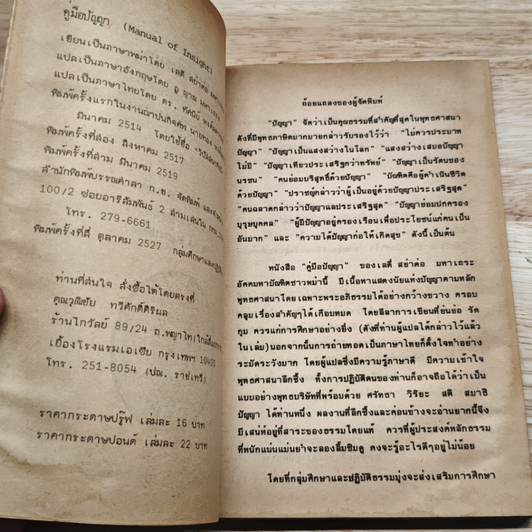 คู่มือปัญญา (Manual of Insight)
เขียนเป็นภาษาพม่าโดย เลดี สย่าด่อ
แปลเป็นภาษาอังกฤษโดย อู ญาณ
แปลเป็นภาษาไทยโดย ดร.
พิมพ์ครั้งแรกในงานฌาปนกิจศพ
มีนาคม 2514 โดยใช้ชื่อ
พิมพ์ครั้งที่สอง สิงหาคม 2517
พิมพ์ครั้งที่สาม มีนาคม 2519
สำนักพิมพ์บรรณศาลา ก.ข.
100/2 ซอยอารีสัมพันธ์ 2
โทร. 279-6661
พิมพ์ครั้งที่สี่ ตุลาคม 2527 กลุ่มศึกษาและปฏิบัติ
ท่านที่สนใจ สั่งซื้อได้โดยตรงที่
คุณวุฒิชัย ทวีศักดิ์ศิริผล
ร้านไกวัลย์ 89/24 ถ.พญาไท
เยื้องโรงแรมเอเชีย กรุงเทพฯ 10400
โทร. 251-8054 (ปณ. ราชเทวี)
ราคากระดาษปรู๊ฟ เล่มละ 16 บาท
ราคากระดาษปอนด์ เล่มละ 22 บาท
ถ้อยแถลงของผู้จัดพิมพ์
"ปัญญา" จัดว่าเป็นคุณธรรมที่สำคัญที่สุดในพุทธศาสนา
ดังที่มีพุทธภาษิตมากมายกล่าวรับรองไว้ว่า "ไม่ควรประมาท
ปัญญา" "ปัญญาเป็นแสงสว่างในโลก" "แสงสว่างเสมอปัญญา
ไม่มี" "ปัญญาเทียวประเสริฐกว่าทรัพย์" "ปัญญาเป็นรัตนของ
นรชน" "คนย่อมบริสุทธิ์ด้วยปัญญา" "บัณฑิตคือผู้ดำเนินชีวิต
ด้วยปัญญา" "ปราชญ์กล่าวว่าผู้เป็นอยู่ด้วยปัญญาประเสริฐสุด"
"คนฉลาดกล่าวว่าปัญญาแลประเสริฐสุด" "ปัญญาย่อมปกครอง
บุรุษบุคคล" "ผู้มีปัญญาอยู่ครองเรือนเพื่อประโยชน์แก่คนเป็น
อันมาก" และ "ความได้ปัญญาก่อให้เกิดสุข" ดังนี้เป็นต้น
หนังสือ "คู่มือปัญญา" ของ เลดี สย่าด่อ มหาเถระ
อัคคมหาบัณฑิตชาวพม่านี้ มีเนื้อหาแสดงนัยแห่งปัญญาตามหลัก
พุทธศาสนาโดยเฉพาะพระอภิธรรมได้อย่างกว้างขวาง ครอบ
คลุมเรื่องสำคัญๆได้เกือบหมด โดยลีลาการเขียนที่ย่นย่อ รัด
กุม ควรแก่การศึกษาอย่างยิ่ง (ดังที่ท่านผู้แปลได้กล่าวไว้แล้ว
ในเล่ม) นอกจากนั้นการถ่ายทอดเป็นภาษาไทยก็ตั้งใจทำอย่าง
ระมัดระวังมาก โดยผู้แปลซึ่งมีความรู้ภาษาดี มีความเข้าใจ
พุทธศาสนาลึกซึ้ง ทั้งการปฏิบัติตนของท่านก็อาจถือได้ว่าเป็น
แบบอย่างพุทธบริษัทที่พร้อมด้วย ศรัทธา วิริยะ สติ สมาธิ
ปัญญา ได้ท่านหนึ่ง ผลงานที่ลึกซึ้งและค่อนข้างจะอ่านยากนี้จึง
มีเสน่ห์อยู่ที่สาระของธรรมโดยแท้ ควรที่ผู้ประสงค์หลักธรรม
ที่หนักแน่นแม่นยำจะลองลิ้มชิมดู คงจะรู้อะไรดีๆอยู่ไม่น้อย
โดยที่กลุ่มศึกษาและปฏิบัติธรรมมุ่งจะส่งเสริมการศึกษา